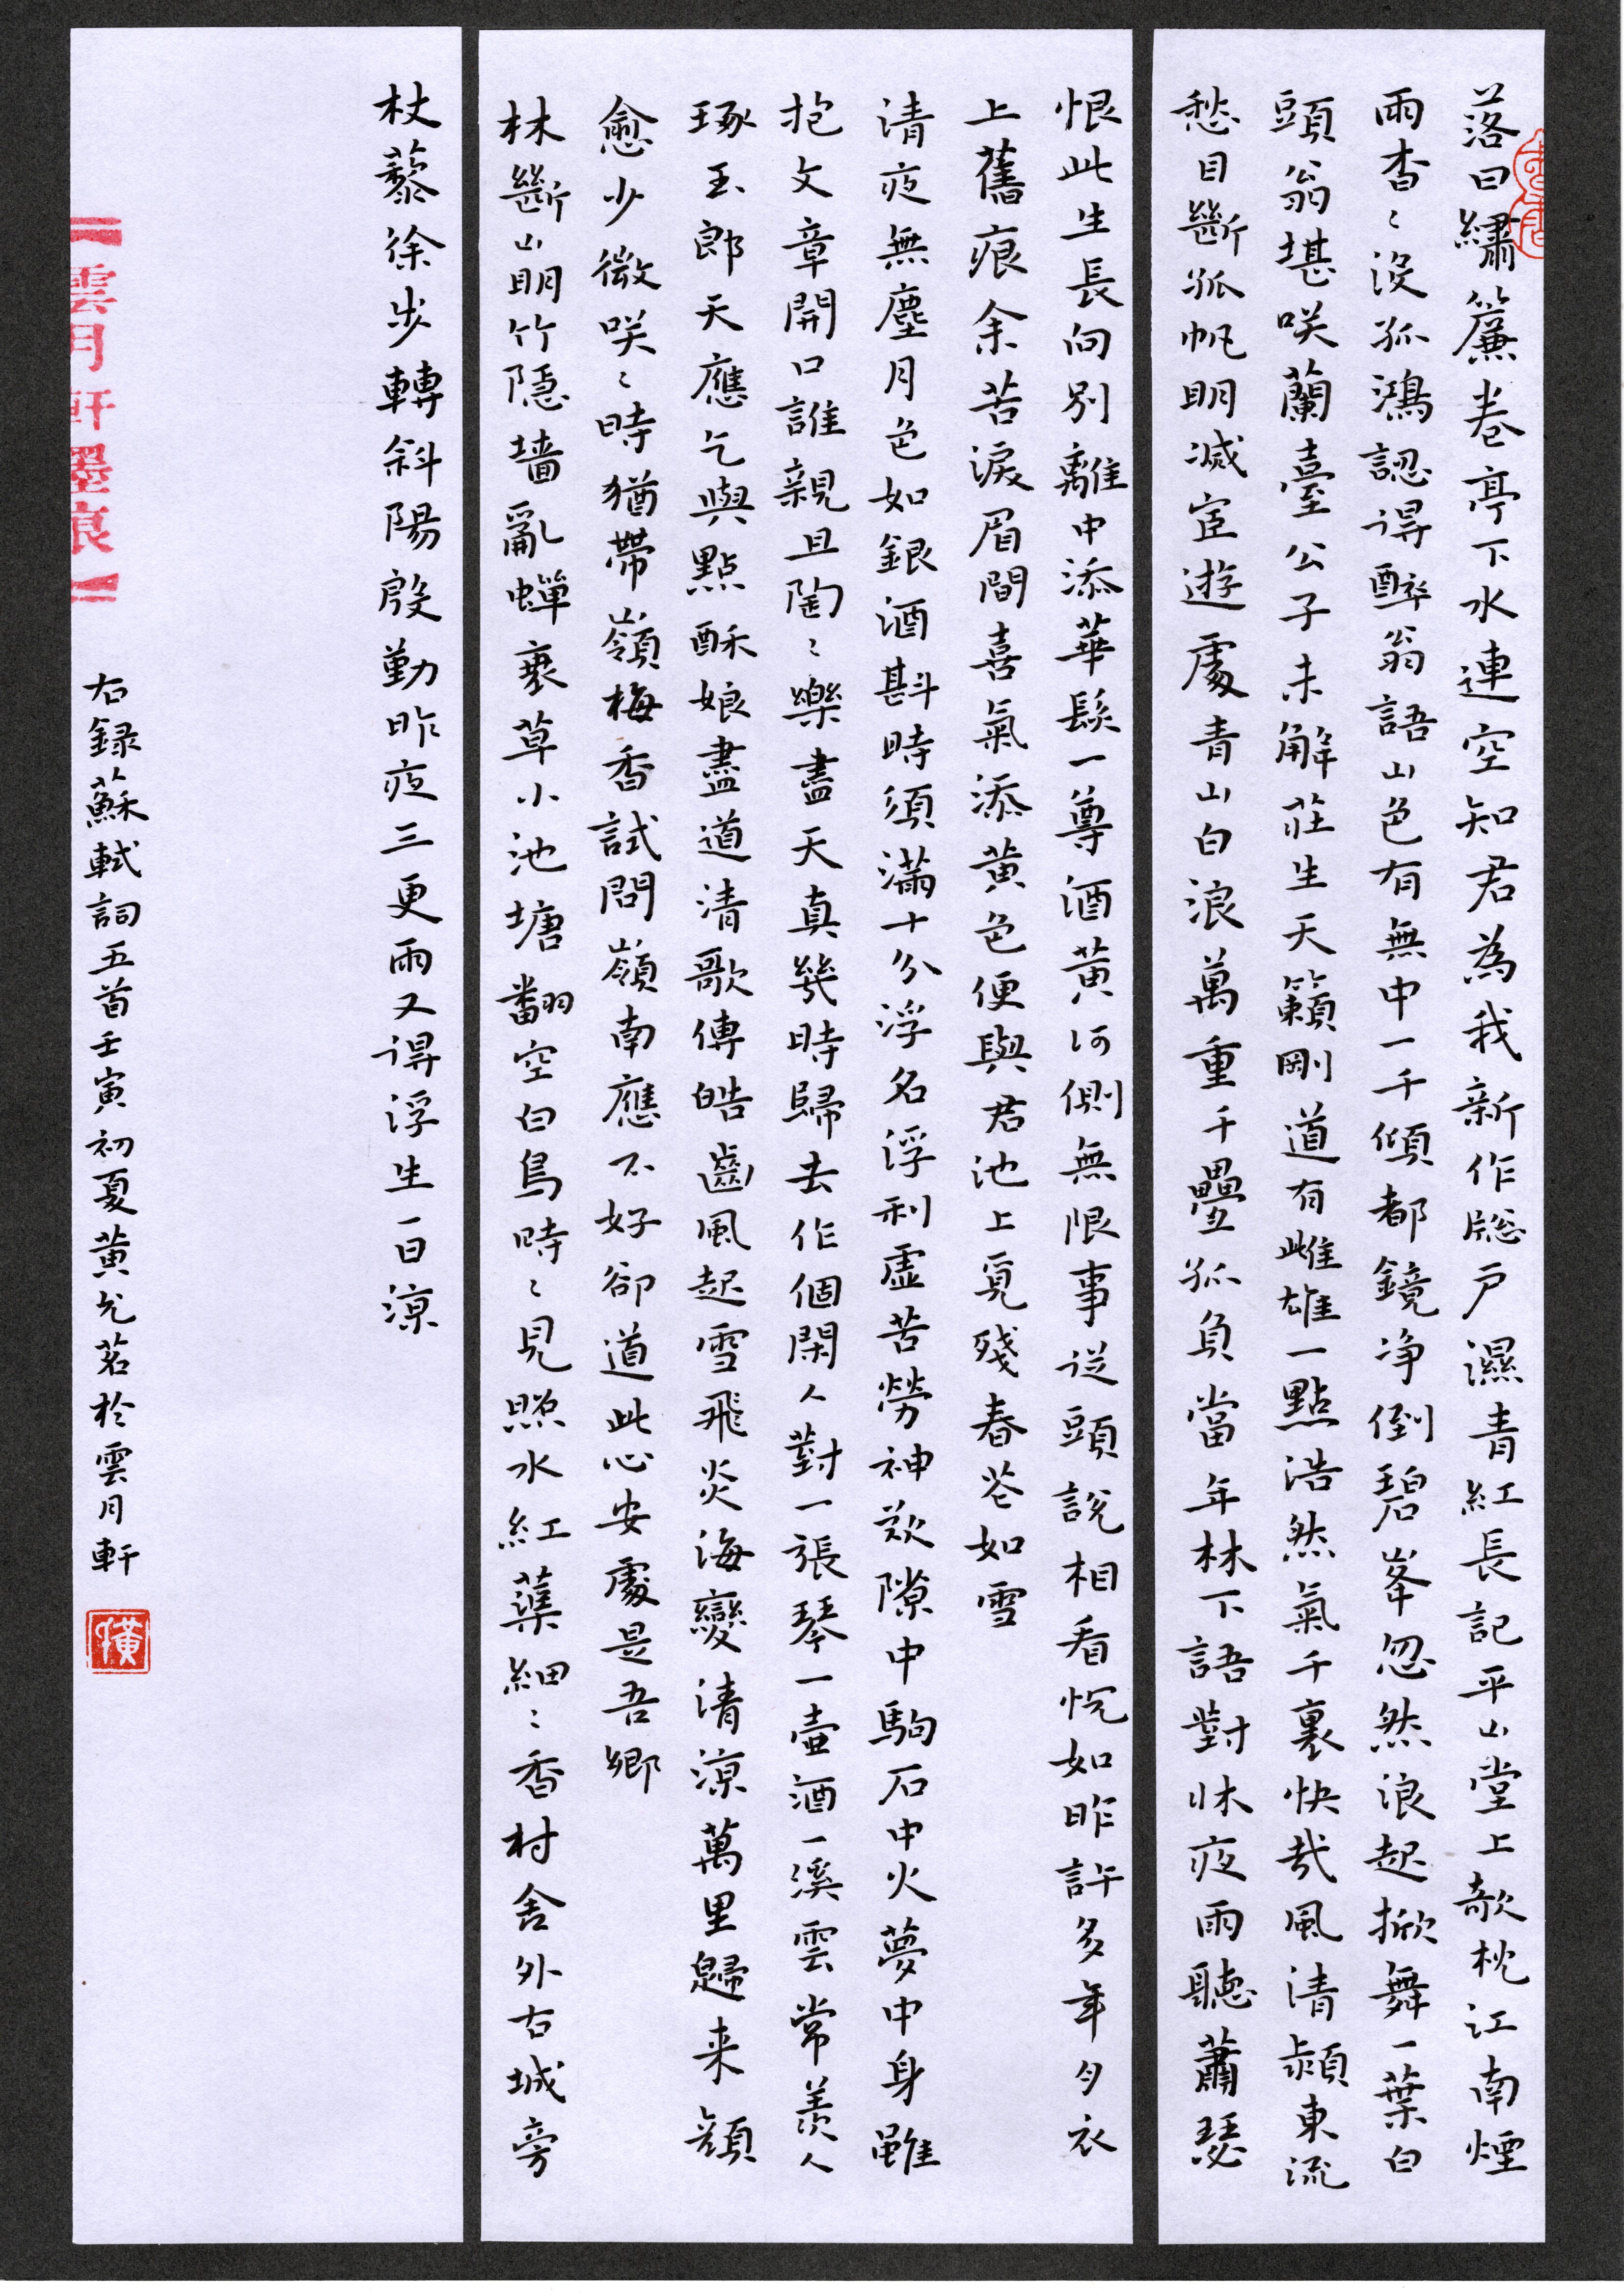 落日繡簾卷亭下水連空知君為我新作牕戶濕青紅長記平山堂上欹枕江南煙
雨杳〻沒孤鴻認得醉翁語山色有無中一千傾都鏡净倒碧峯忽然浪起掀舞一葉白
頭翁堪咲蘭臺公子未解莊生天籟剛道有雌雄一點浩然氣千裏快哉風清潁東流
愁目斷孤帆明滅宦遊處青山白浪萬重千疊孤負當年林下語對牀夜雨聽蕭瑟
恨此生長向別離中添華髮一尊酒黃河側無限事從頭說相看恍如昨許多年月衣
上舊痕余苦淚眉間喜氣添黃色便與君池上覓殘春花如雪
清夜無塵月色如銀酒斟時須滿十分浮名浮利虛苦勞神歎隙中駒石中火夢中身雖
抱文章開口誰親且陶〻樂盡天真幾時歸去作個閑人對一張琴一壺酒一溪雲常羨人
琢玉郎天應乞與點酥娘盡道清歌傳皓齒風起雪飛炎海變清涼萬里歸来顏
愈少微咲〻時猶帶嶺梅香試問嶺南應不好卻道此心安處是吾鄉
林斷山明竹隱墻亂蟬衰草小池塘翻空白鳥時〻見照水紅蕖細〻香村舍外古城旁
杖藜徐步轉斜陽殷勤昨夜三更雨又得浮生一日涼
右録蘇軾詞五首壬寅初夏黄允茗於雲月軒
雲月軒墨痕